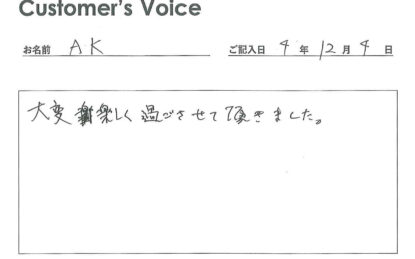 Customer's Voice
お名前 AK ご記入日 4年12月4日
大変楽しく過ごさせて頂きました。